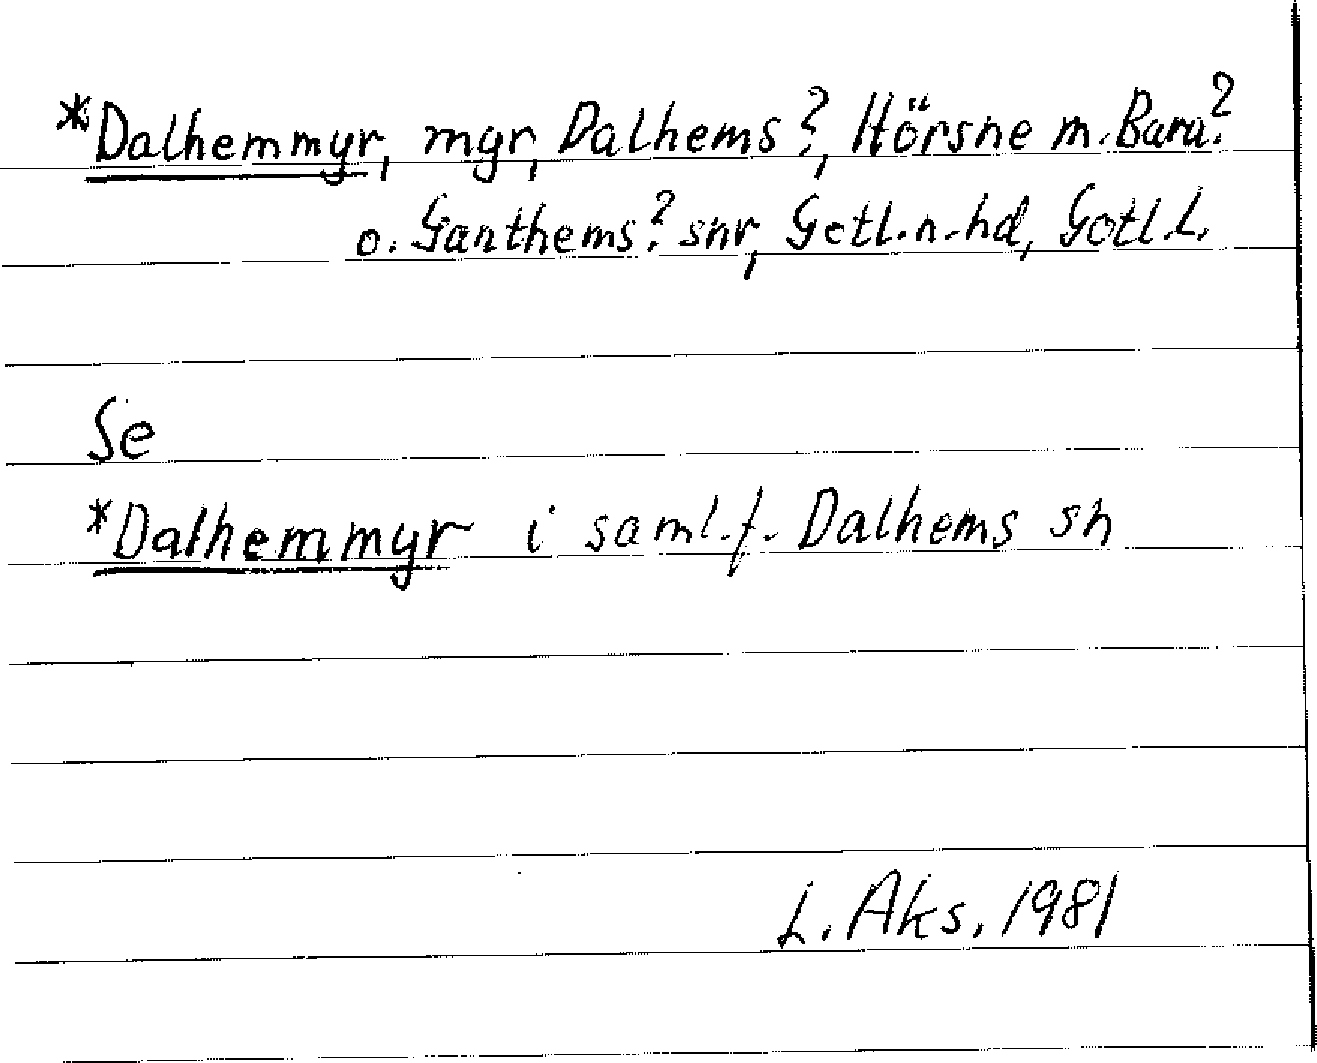 *Dalhemmyr, myr, Dalhems?, Hörsne m. Bara?
o. Ganthems? snr, Gotl. n. hd, Gotl. L.
Se
*Dalhemmyr i saml. f. Dalhems sn
L. Aks. 1981